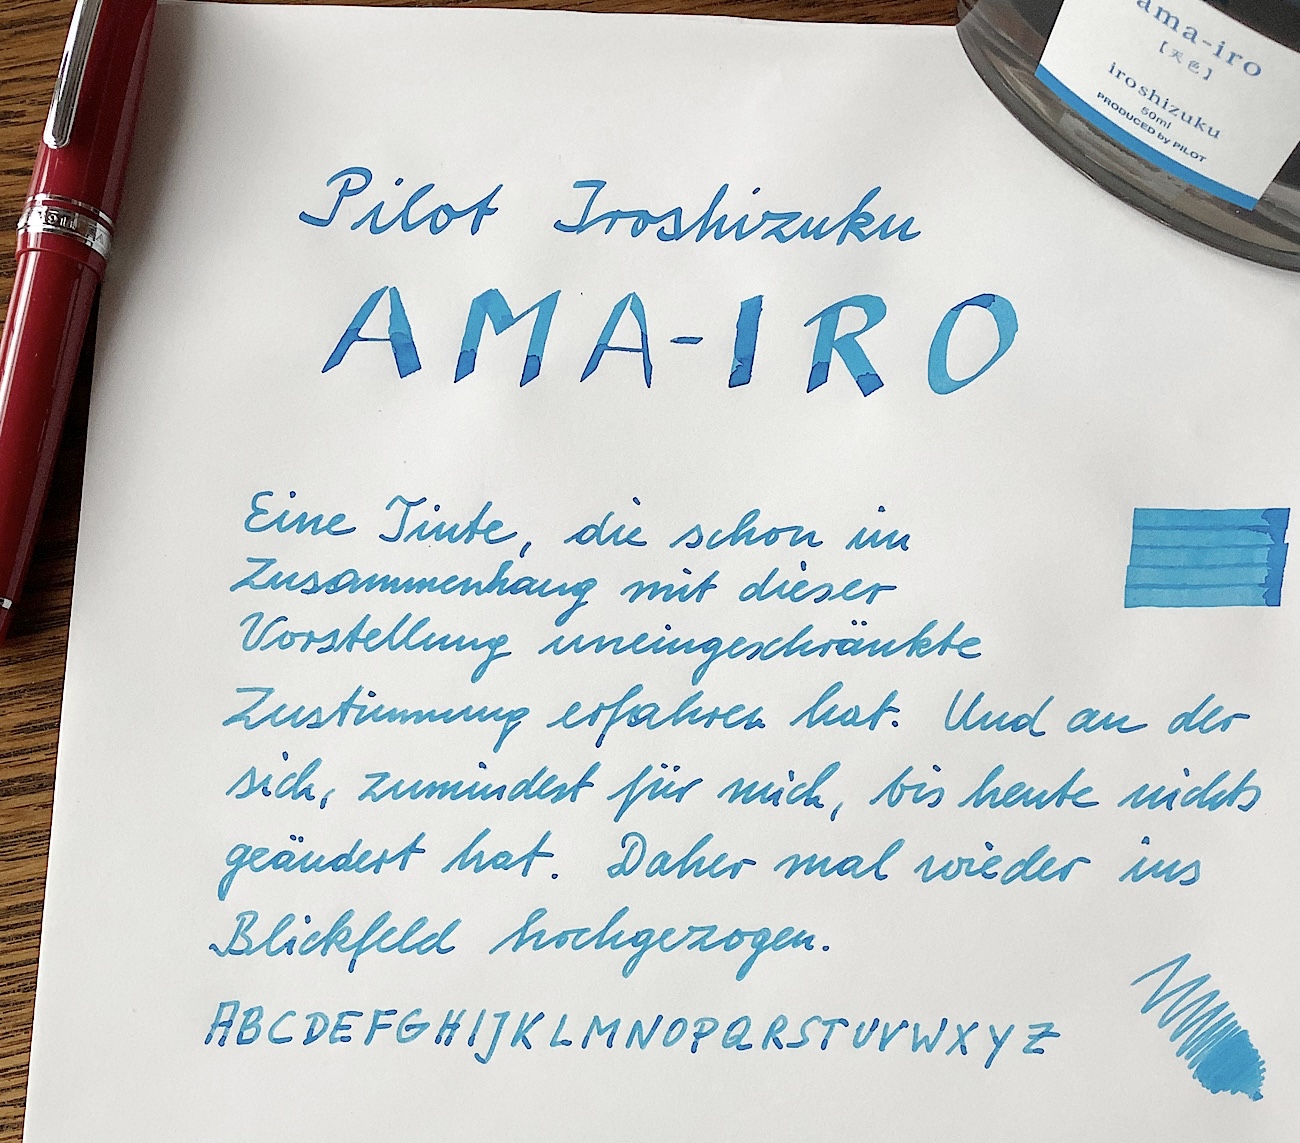 ama-iro
【天色】
iroshizuku
50ml
PRODUCED by PILOT
Pilot Iroshizuku
AMA-IRO
Eine Tinte, die schon im
Zusammenhang mit dieser
Vorstellung uneingeschränkte
Zustimmung erfahren hat. Und an der
sich, zumindest für mich, bis heute nichts
geändert hat. Daher mal wieder ins
Blickfeld hochgezogen.
ABCDEFGHIJKLMNOPQRSTUVWXYZ